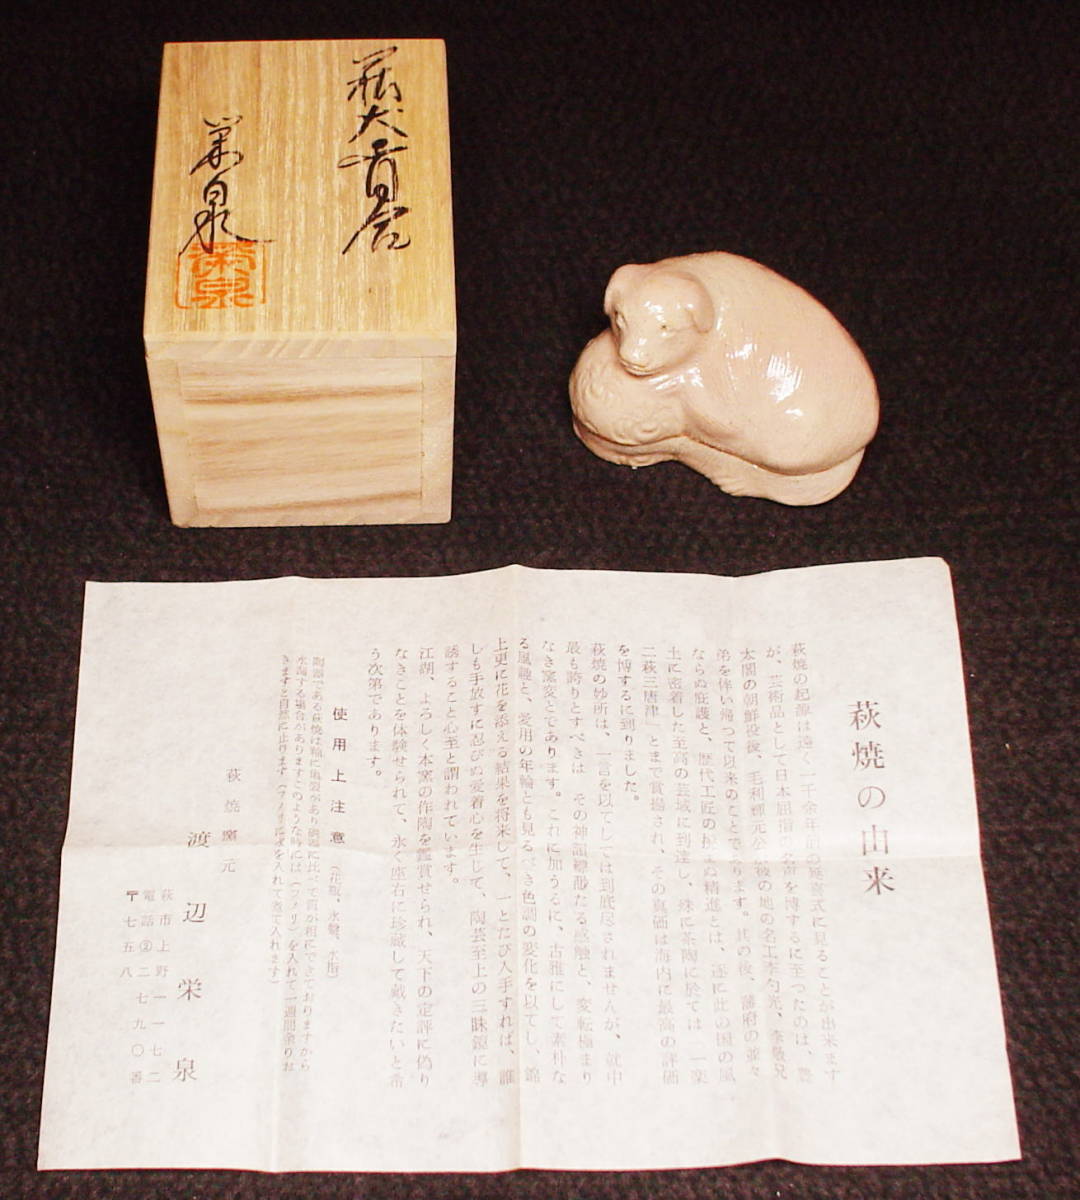 萩犬香合
栄泉
栄泉
萩焼の由来
萩焼の起源は遠く一千余年前の延喜式に見ることが出来ます
が、芸術品として日本屈指の名声を博するに至つたのは、豊
太閤の朝鮮役後、毛利輝元公が彼の地の名工李勺光、李敬兄
弟を伴い帰つて以来のことであります。其の後、藩府の並々
ならぬ庇護と、歴代工匠のたゆまぬ精進とは、遂に此の国の風
土に密着した至高の芸域に到達し、殊に茶陶に於ては「一楽
二萩三唐津」とまで賞揚され、その真価は海内に最高の評価
を博するに到りました。
萩焼の妙所は、一言を以てしては到底尽されませんが、就中
最も誇りとすべきは その神韻縹渺たる感触と、変転極まり
なき窯変とであります。これに加うるに、古雅にして素朴な
る風趣と、愛用の年輪とも見るべき色調の変化を以てし、錦
上更に花を添える結果を将来して、一とたび入手すれば、誰
しも手放すに忍びぬ愛着心を生じて、陶芸至上の三昧鏡に導
誘すること心至と謂われています。
江湖、よろしく本窯の作陶を鑑賞せられ、天下の定評に偽り
なきことを体験せられて、永く座右に珍蔵して戴きたいと希
う次第であります。
使用上注意(花瓶、水盤、水指)
陶器である萩焼は釉に亀裂があり磁器に比べて質が粗にできておりますから
水漏する場合がありますこのような時には(フノリ)を入れて一週間余りお
きますと自然に止ります(フノまた水を入れて煮て入れます)
萩焼窯元
渡辺栄泉
萩市上野一一七二
電話②二七九〇番
〒七五八